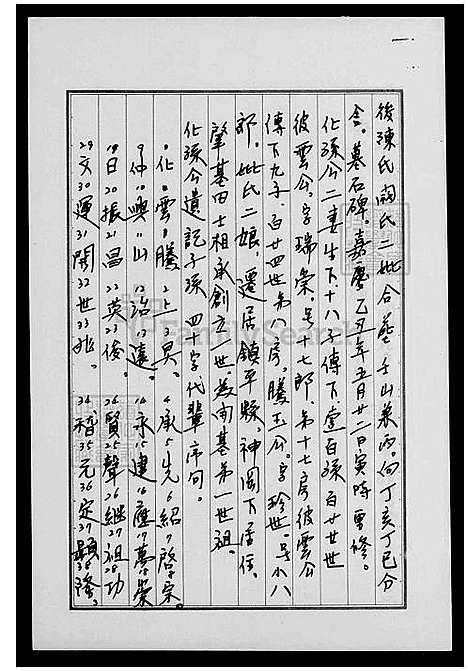 一
後陳氏闕氏二妣合葬壬山兼丙。向丁亥丁巳分
金。墓石碑。嘉慶乙丑年五月廿二日寅時重修。
化孫公二妻生下、十八子傳下、壹百孫百廿世
彼雲公、字瑞榮。号十七郎、第十七房彼雲公
傳下九子、百廿四世第八房。騰玉公。字珍世。号小八
郎。妣氏二娘、遷居鎮平縣。神岡下居住、
肇基田士祖承創立世。為開基第一世祖。
化孫公遺記子孫四十字代輩序句。
1化2雲3騰上3昊。4承5先6紹7啓8宗
9仲10興11山12治13遠。14永15建16應17萬18榮
19日20振21昌22英23俊。24賢25聲26繼27祖28功
29文30運31開32世33兆。34稽35元36定37顯38隆。
FamilySearch